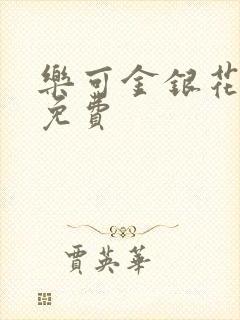 樂可金銀花
免費
賈英華